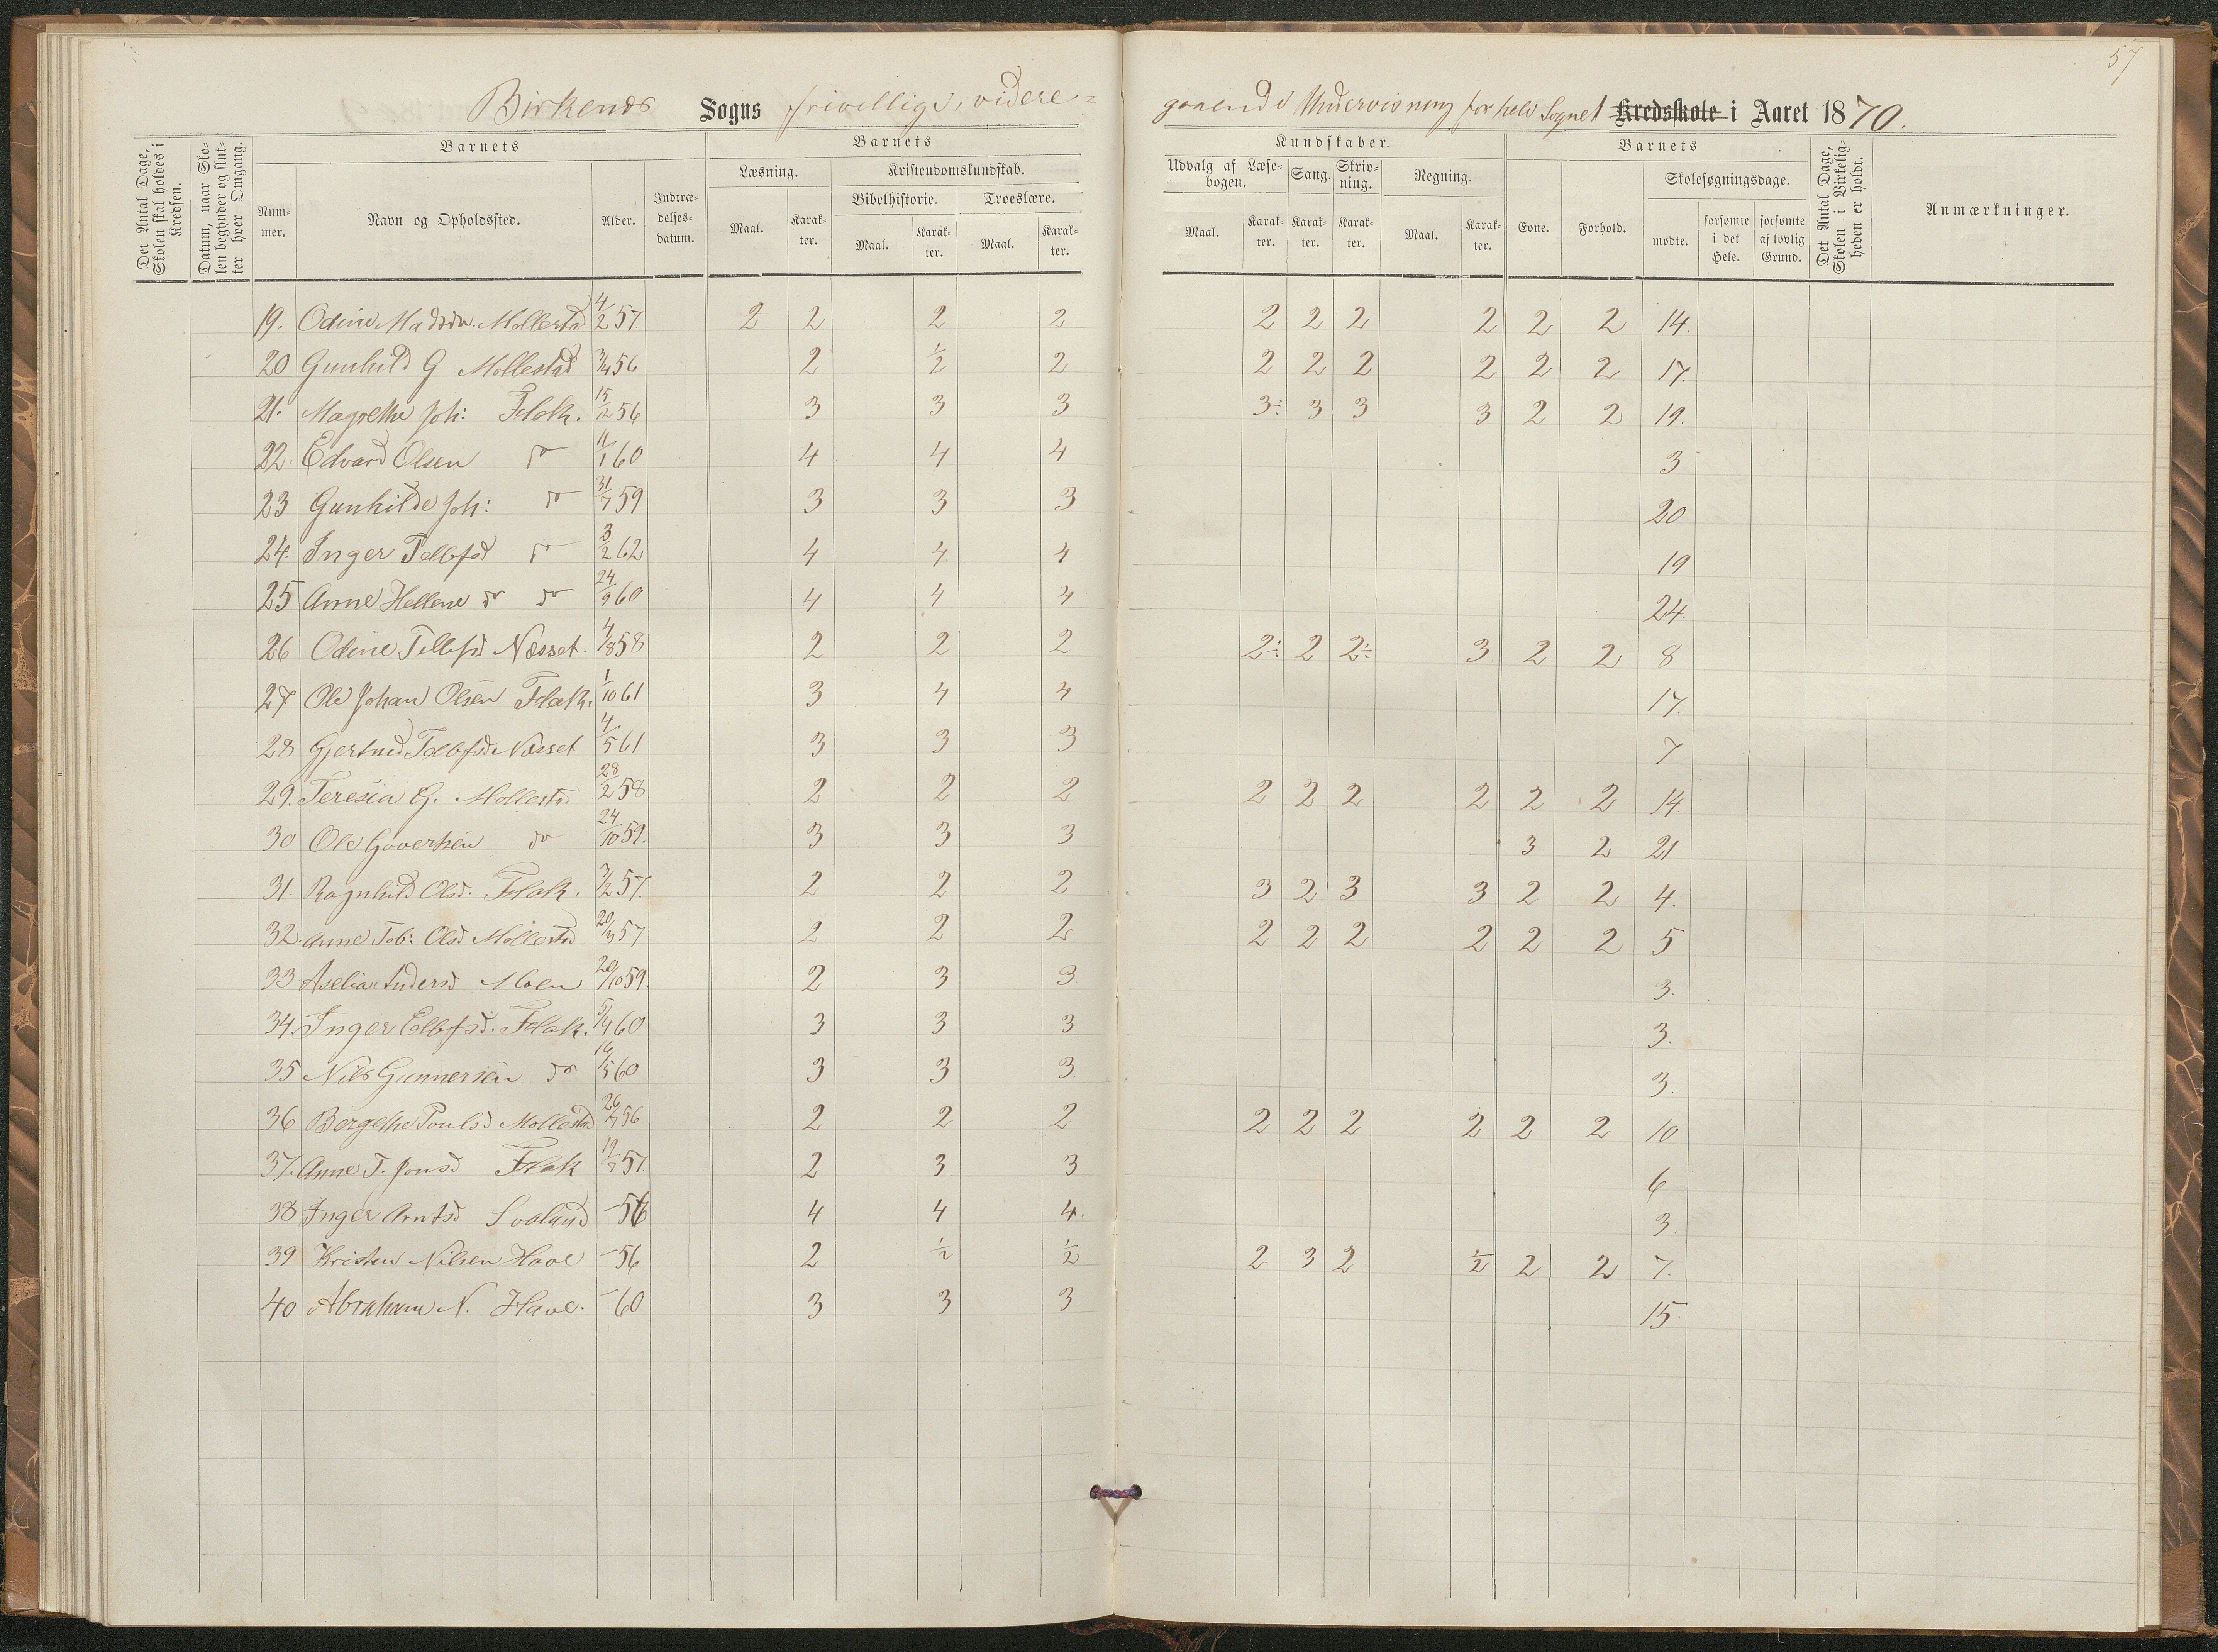 57
Birkenæs Sogns frivillige, videre=
gaaende Undervisning for hele Sognet Kredsskole i Aaret 1870.
Det Antal Dage, Skolen skal holdes i Kredsen.
Datum, naar Skolen begynder og slutter hver Omgang.
Barnets
Nummer.
Navn og Opholdssted.
Alder.
Indtrædelsesdatum.
Barnets
Læsning.
Kristendomskundskab.
Bibelhistorie.
Troeslære.
Maal. Karakter. Maal. Karakter. Maal. Karakter.
Kundskaber.
Udvalg af Læsebogen.
Sang.
Skrivning.
Regning.
Maal. Karakter. Karakter. Karakter. Maal. Karakter.
Barnets
Evne. Forhold.
Skolesøgningsdage.
mødte. forsømte i det Hele. forsømte af lovlig Grund.
Det Antal Dage, Skolen i Virkeligheden er holdt.
Anmærkninger.
19. Odine Madsdn. Mollestad 4/2 57 2 2 2 2 2 2 2 2 2 2 14.
20 Gunhild G Mollestad 3/4 56 2 1/2 2 2 2 2 2 2 2 17.
21. Magrethe Joh: Flak. 15/12 56 3 3 3 3÷ 3 3 3 2 2 19.
22. Edvard Olsen do 11/1 60 4 4 4 3
23 Gunhilde Joh: do 31/7 59 3 3 3 20
24. Inger Tellefsd do 3/2 62 4 4 4 19
25 Anne Hellene do do 24/9 60 4 4 4 24.
26 Odine Tellefsd Næsset. 4/8 58 2 2 2 2÷ 2 2÷ 3 2 2 8
27 Ole Johan Olsen Flak. 1/10 61 3 4 4 17.
28 Gjertrud Tellefsd Næsset 4/5 61 3 3 3 7
29. Teresia G. Mollestad 28/2 58 2 2 2 2 2 2 2 2 2 14.
30 Ole Govertsen do 24/10 59. 3 3 3 3 2 21
31. Ragnhild Olsd. Flak. 3/2 57. 2 2 2 3 2 3 3 2 2 4.
32 Anne Tob: Olsd Mollestad 20/3 57 2 2 2 2 2 2 2 2 2 5
33 Aselia Andersd Moen 20/10 59. 2 3 3 3.
34. Inger Ellefsd. Flak. 5/4 60 3 3 3 3.
35 Nils Gunnersen do 16/5 60 3 3 3. 3.
36 Bergethe Poulsd Mollestad 26/4 56 2 2 2 2 2 2 2 2 2 10
37. Anne T. Jonsd. Flak 12/7 57. 2 3 3 6
38 Inger Arntsd Svaland - 56 4 4 4. 3.
39 Kristen Nilsen Have - 56 2 1/2 1/2 2 3 2 1/2 2 2 7.
40 Abraham N. Have. - 60 3 3 3 15.